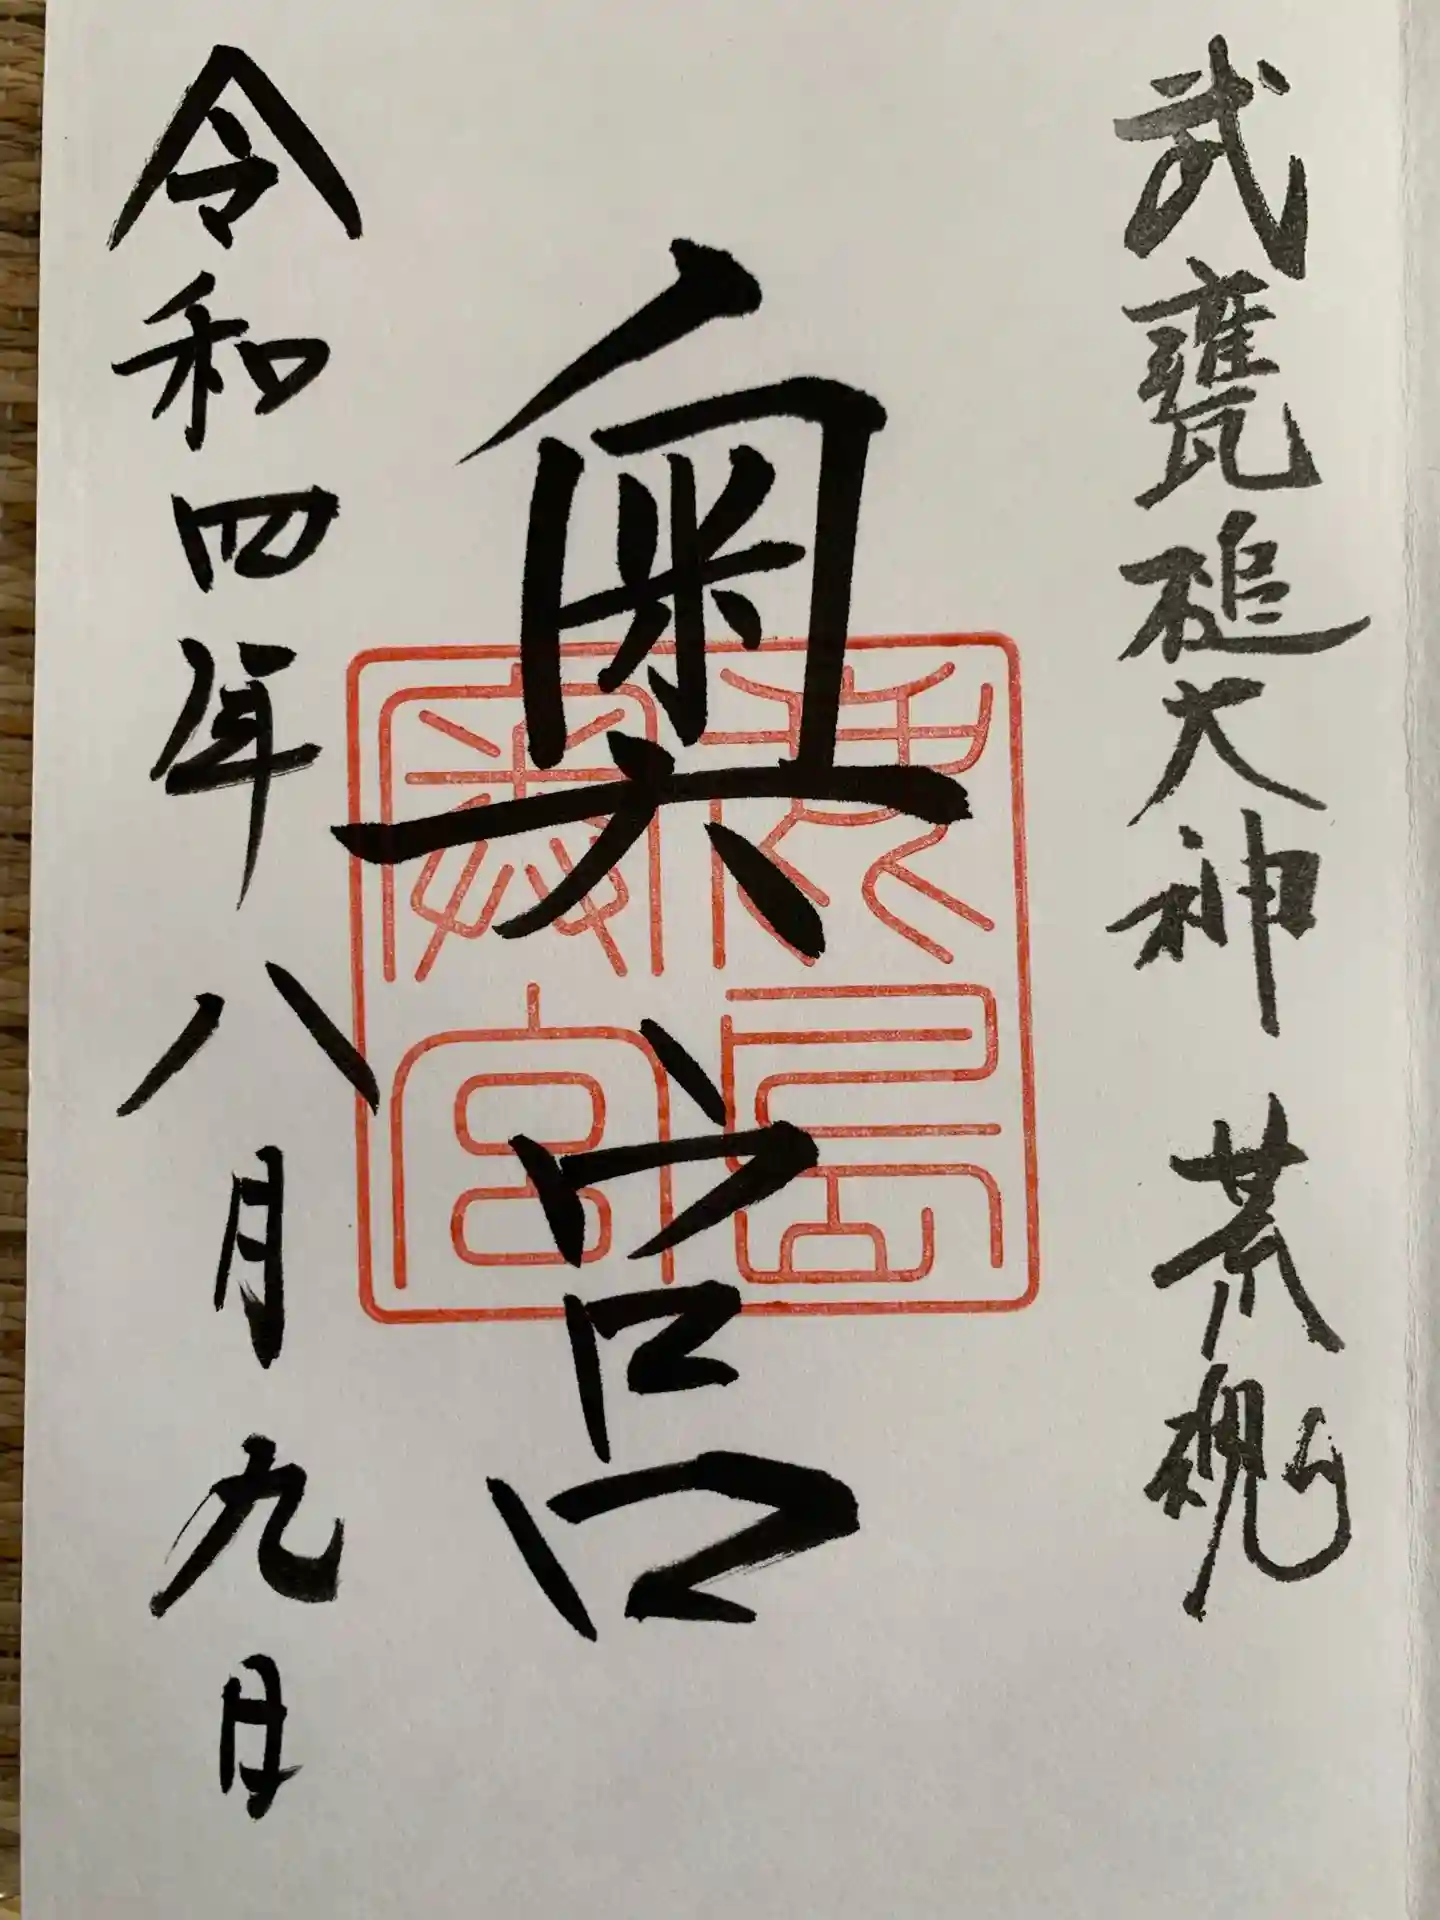 武甕槌大神 荒魂
奥宮
鹿島
奥宮
令和四年八月九日